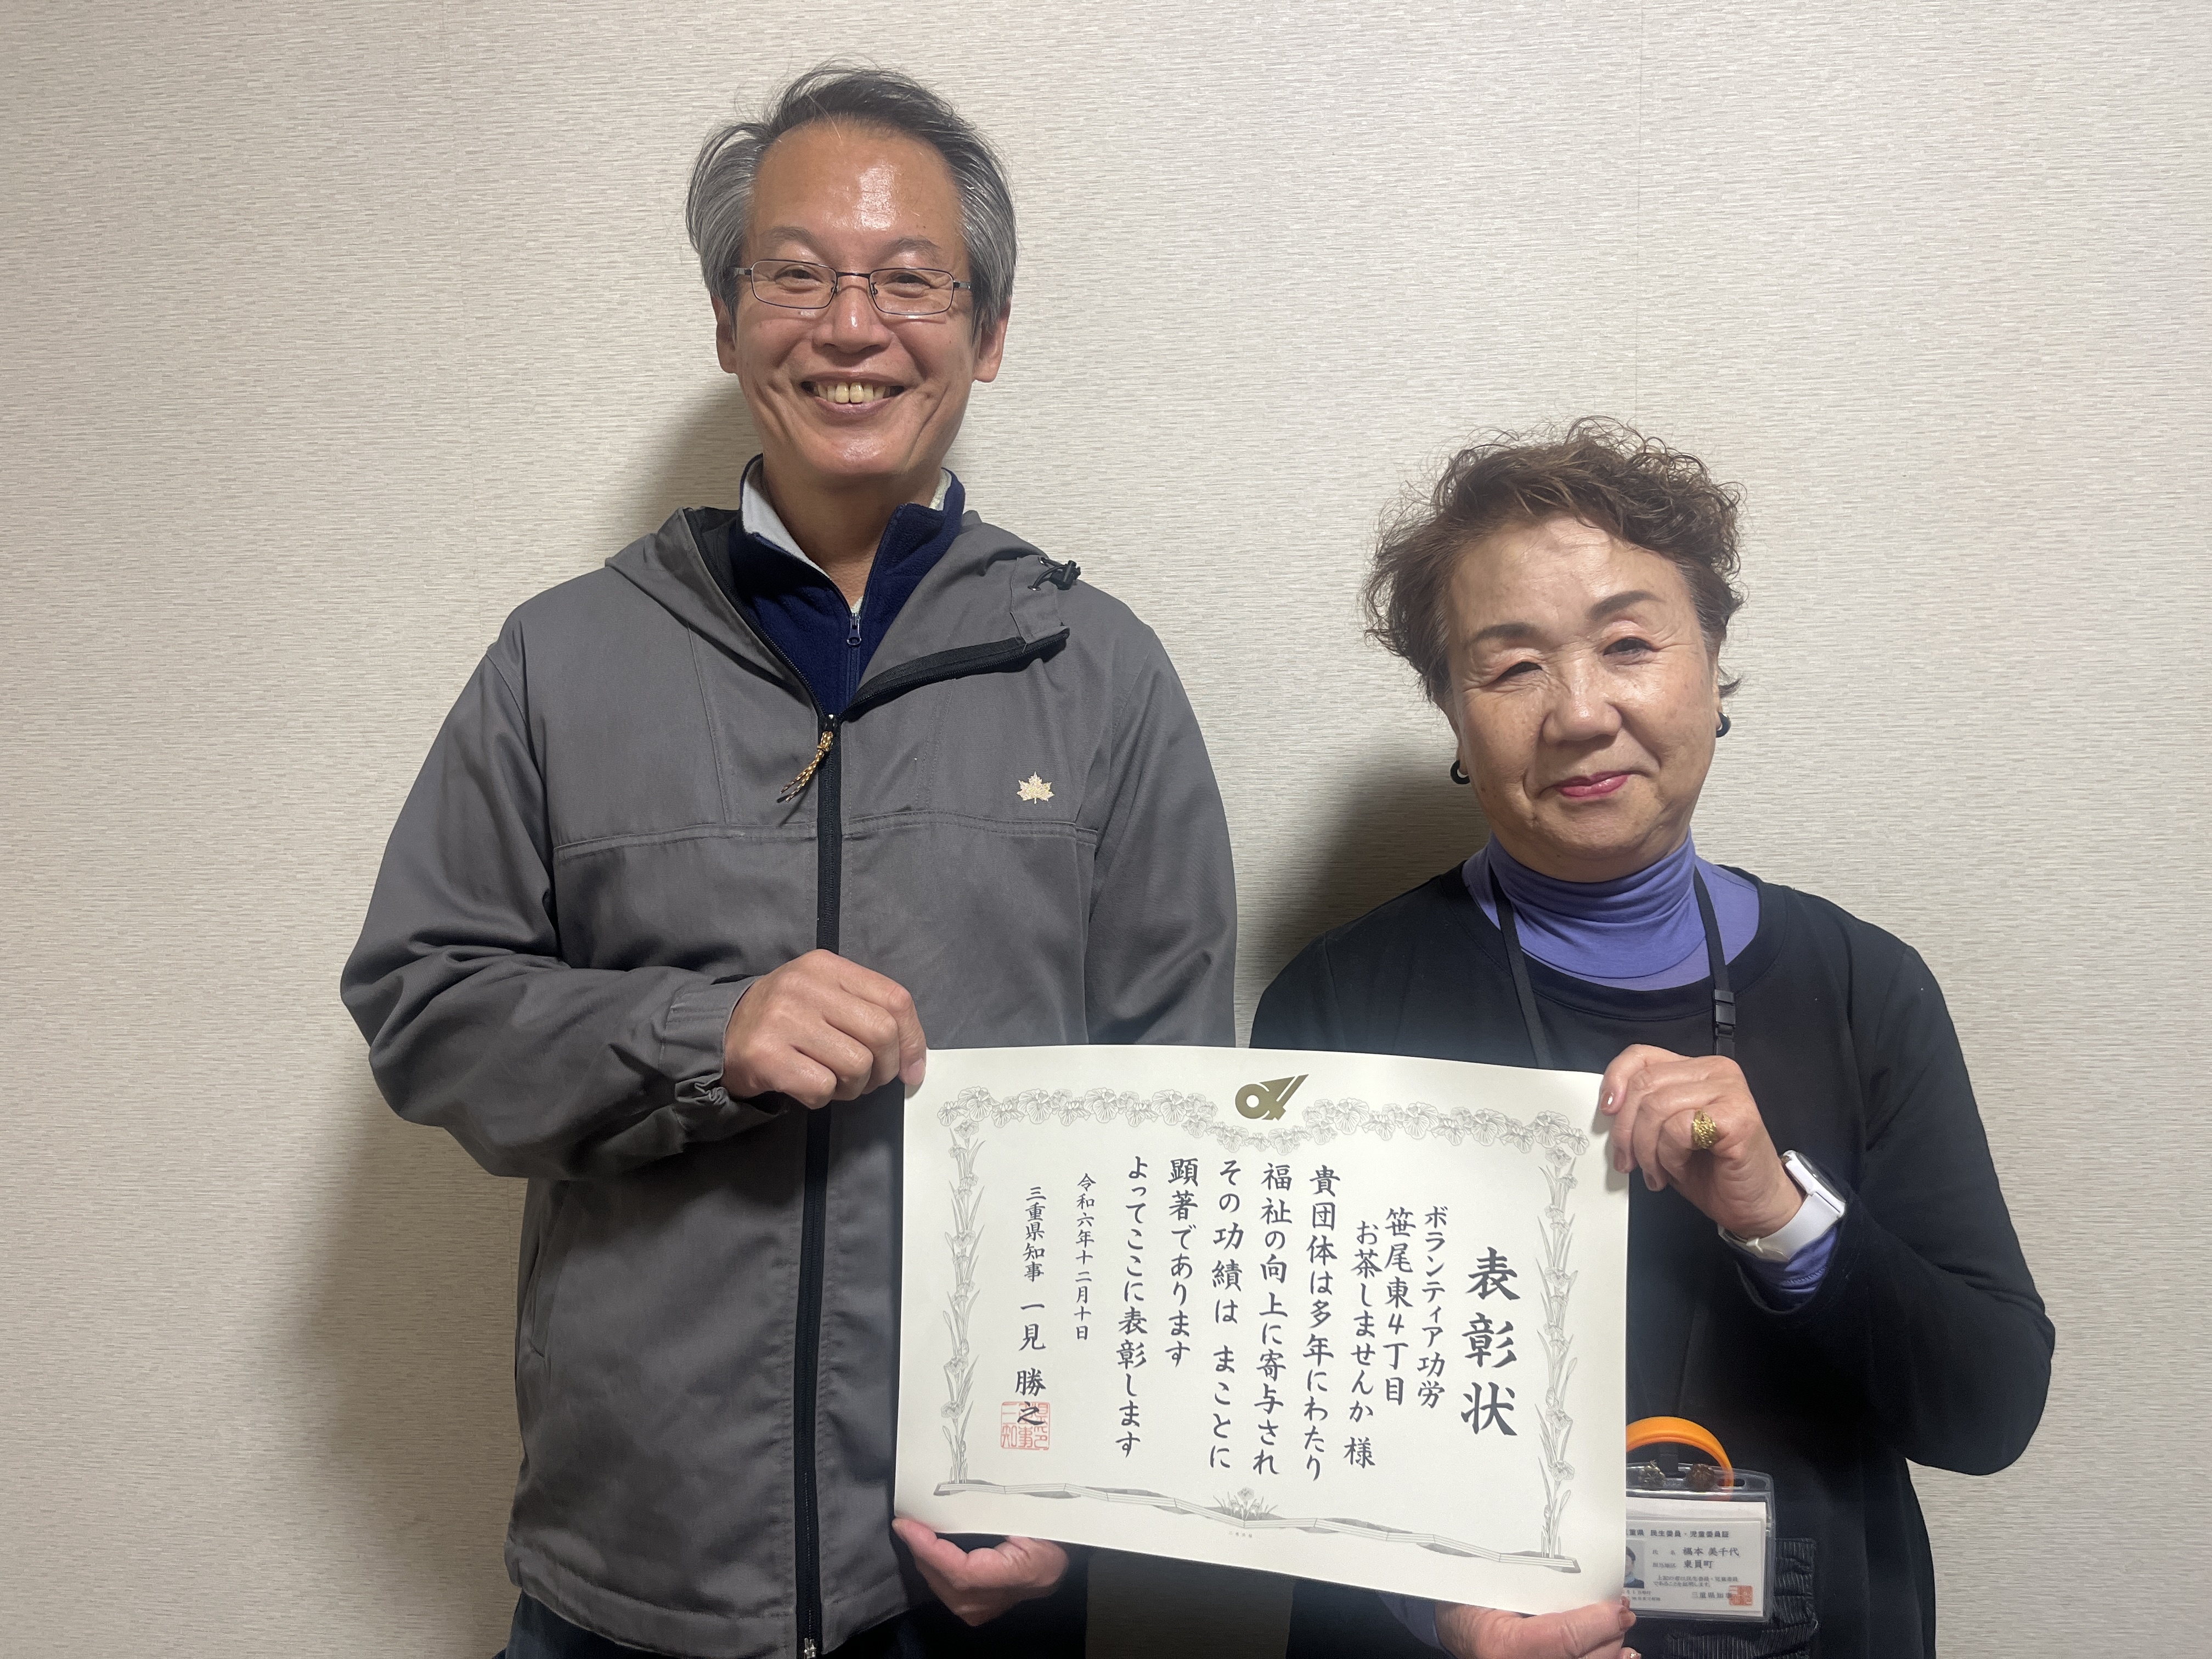 表彰状
ボランティア功労
笹尾東4丁目
お茶しませんか 様
貴団体は多年にわたり
福祉の向上に寄与され
その功績は まことに
顕著であります
よってここに表彰します
令和六年十二月十日
三重県知事 一見 勝之
重県 民生委員・児童委員証
氏名 福本 美千代
東員町
三重県知事